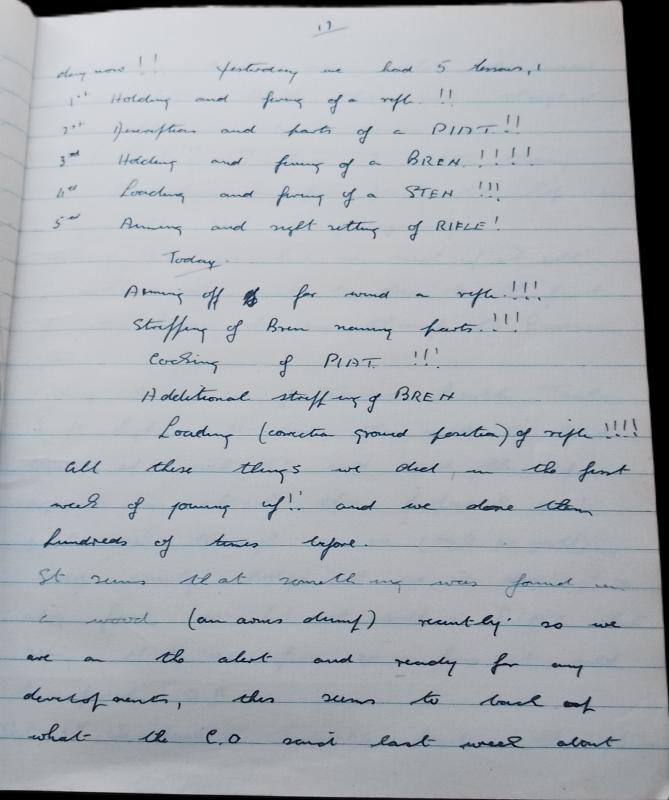 17
day now!! Yesterday we had 5 lessons,!
1st Holding and firing of a rifle. !!
2nd Description and parts of a PIAT!!
3rd Holding and firing of a BREN.!!!!
4th Loading and firing of a STEN !!!
5th Aiming and sight setting of RIFLE!
Today.
Aiming off for wind a rifle.!!!
Stripping of Bren naming parts.!!!
Cocking of PIAT. !!!
Additional stripping of BREN
Loading (correction ground position) of rifle !!!!
All these things we did in the first
week of joining up!! and we done them
hundreds of times before.
It seems that something was found in
a wood (an arms dump) recently so we
are on the alert and ready for any
developments, this seems to back up
what the C.O said last week about